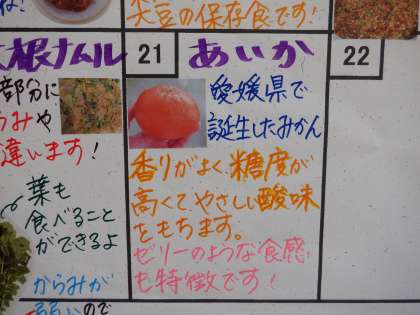 大豆の保存食です!
大根ナムル
部分に
うみや
違います!
葉も
食べること
ができるよ
からみが
弱いので
21
あいか
愛媛県で
誕生したみかん
香りがよく糖度が
高くてやさしい酸味
をもちます。
ゼリーのような食感
も特徴です!
22